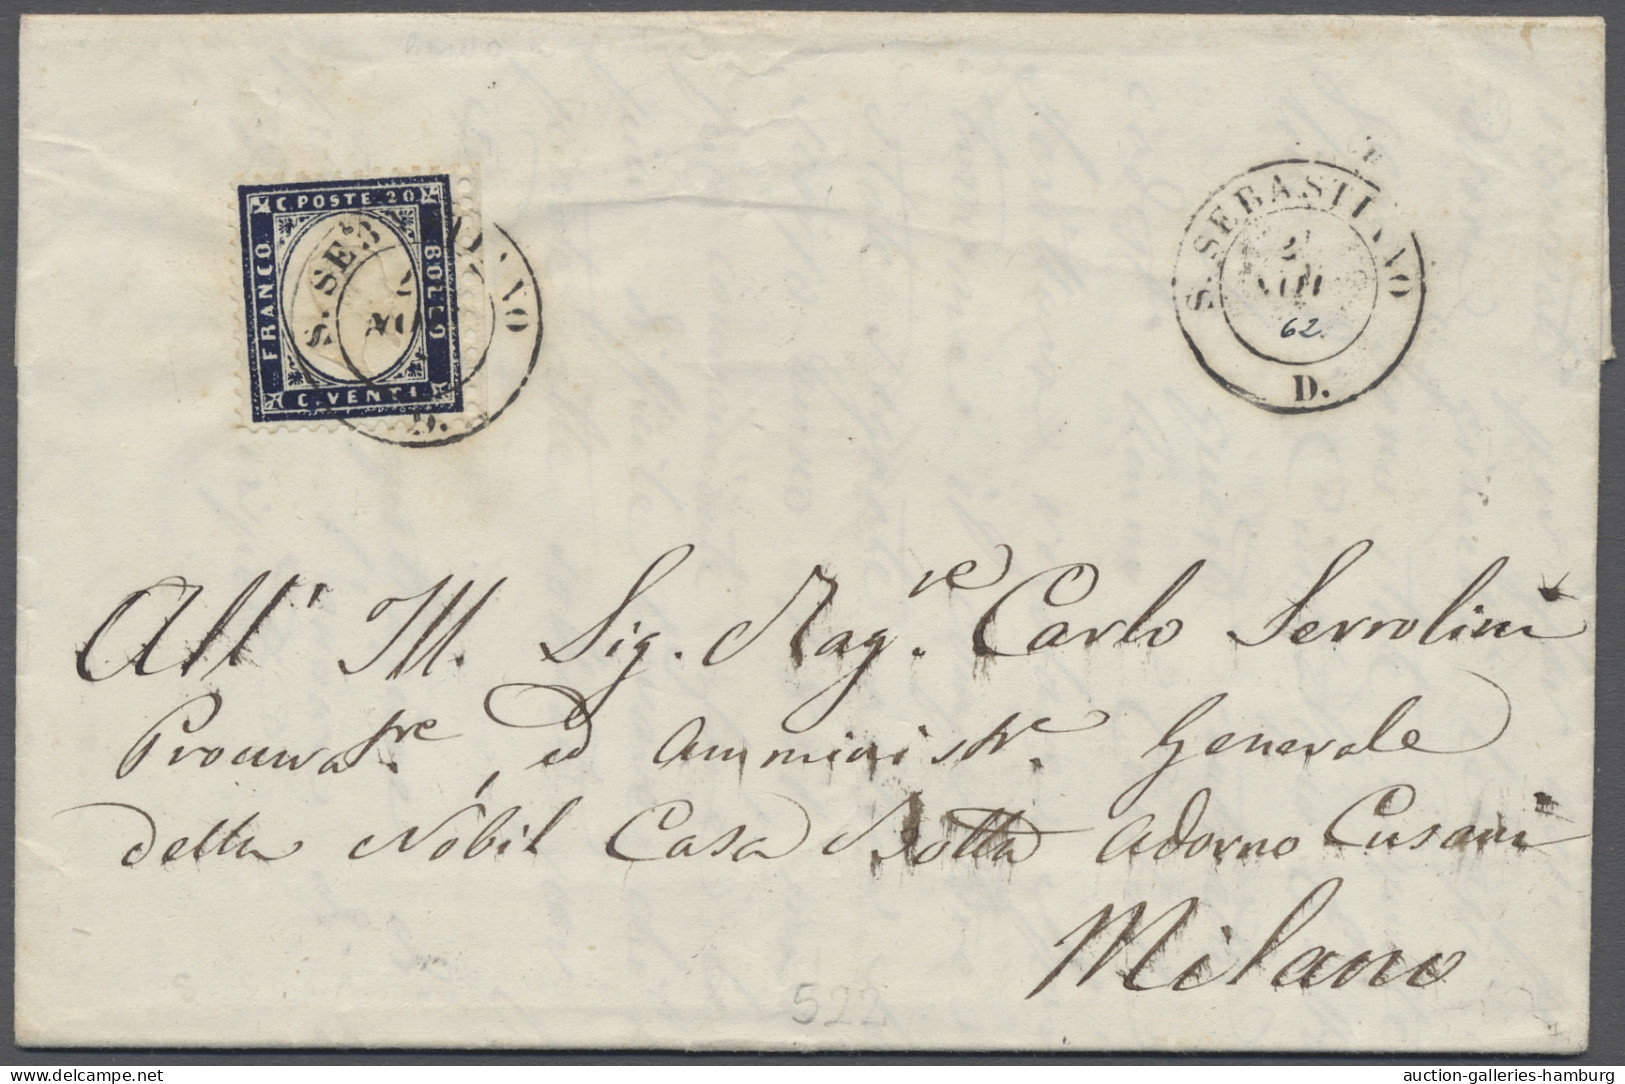 C. POSTE 20
FRANCO
BOLLO
C. VENTI
S. SEB NO
2
NO
D.
S. SEBASTI NO
2
62.
D.
All' Ill. Sig. Rag.re Carlo Serrolini
Procurat.re ed Amministr.e Generale
della Nobil Casa Botta Adorno Cusani
Milano
522
auction-galleries-hamburg